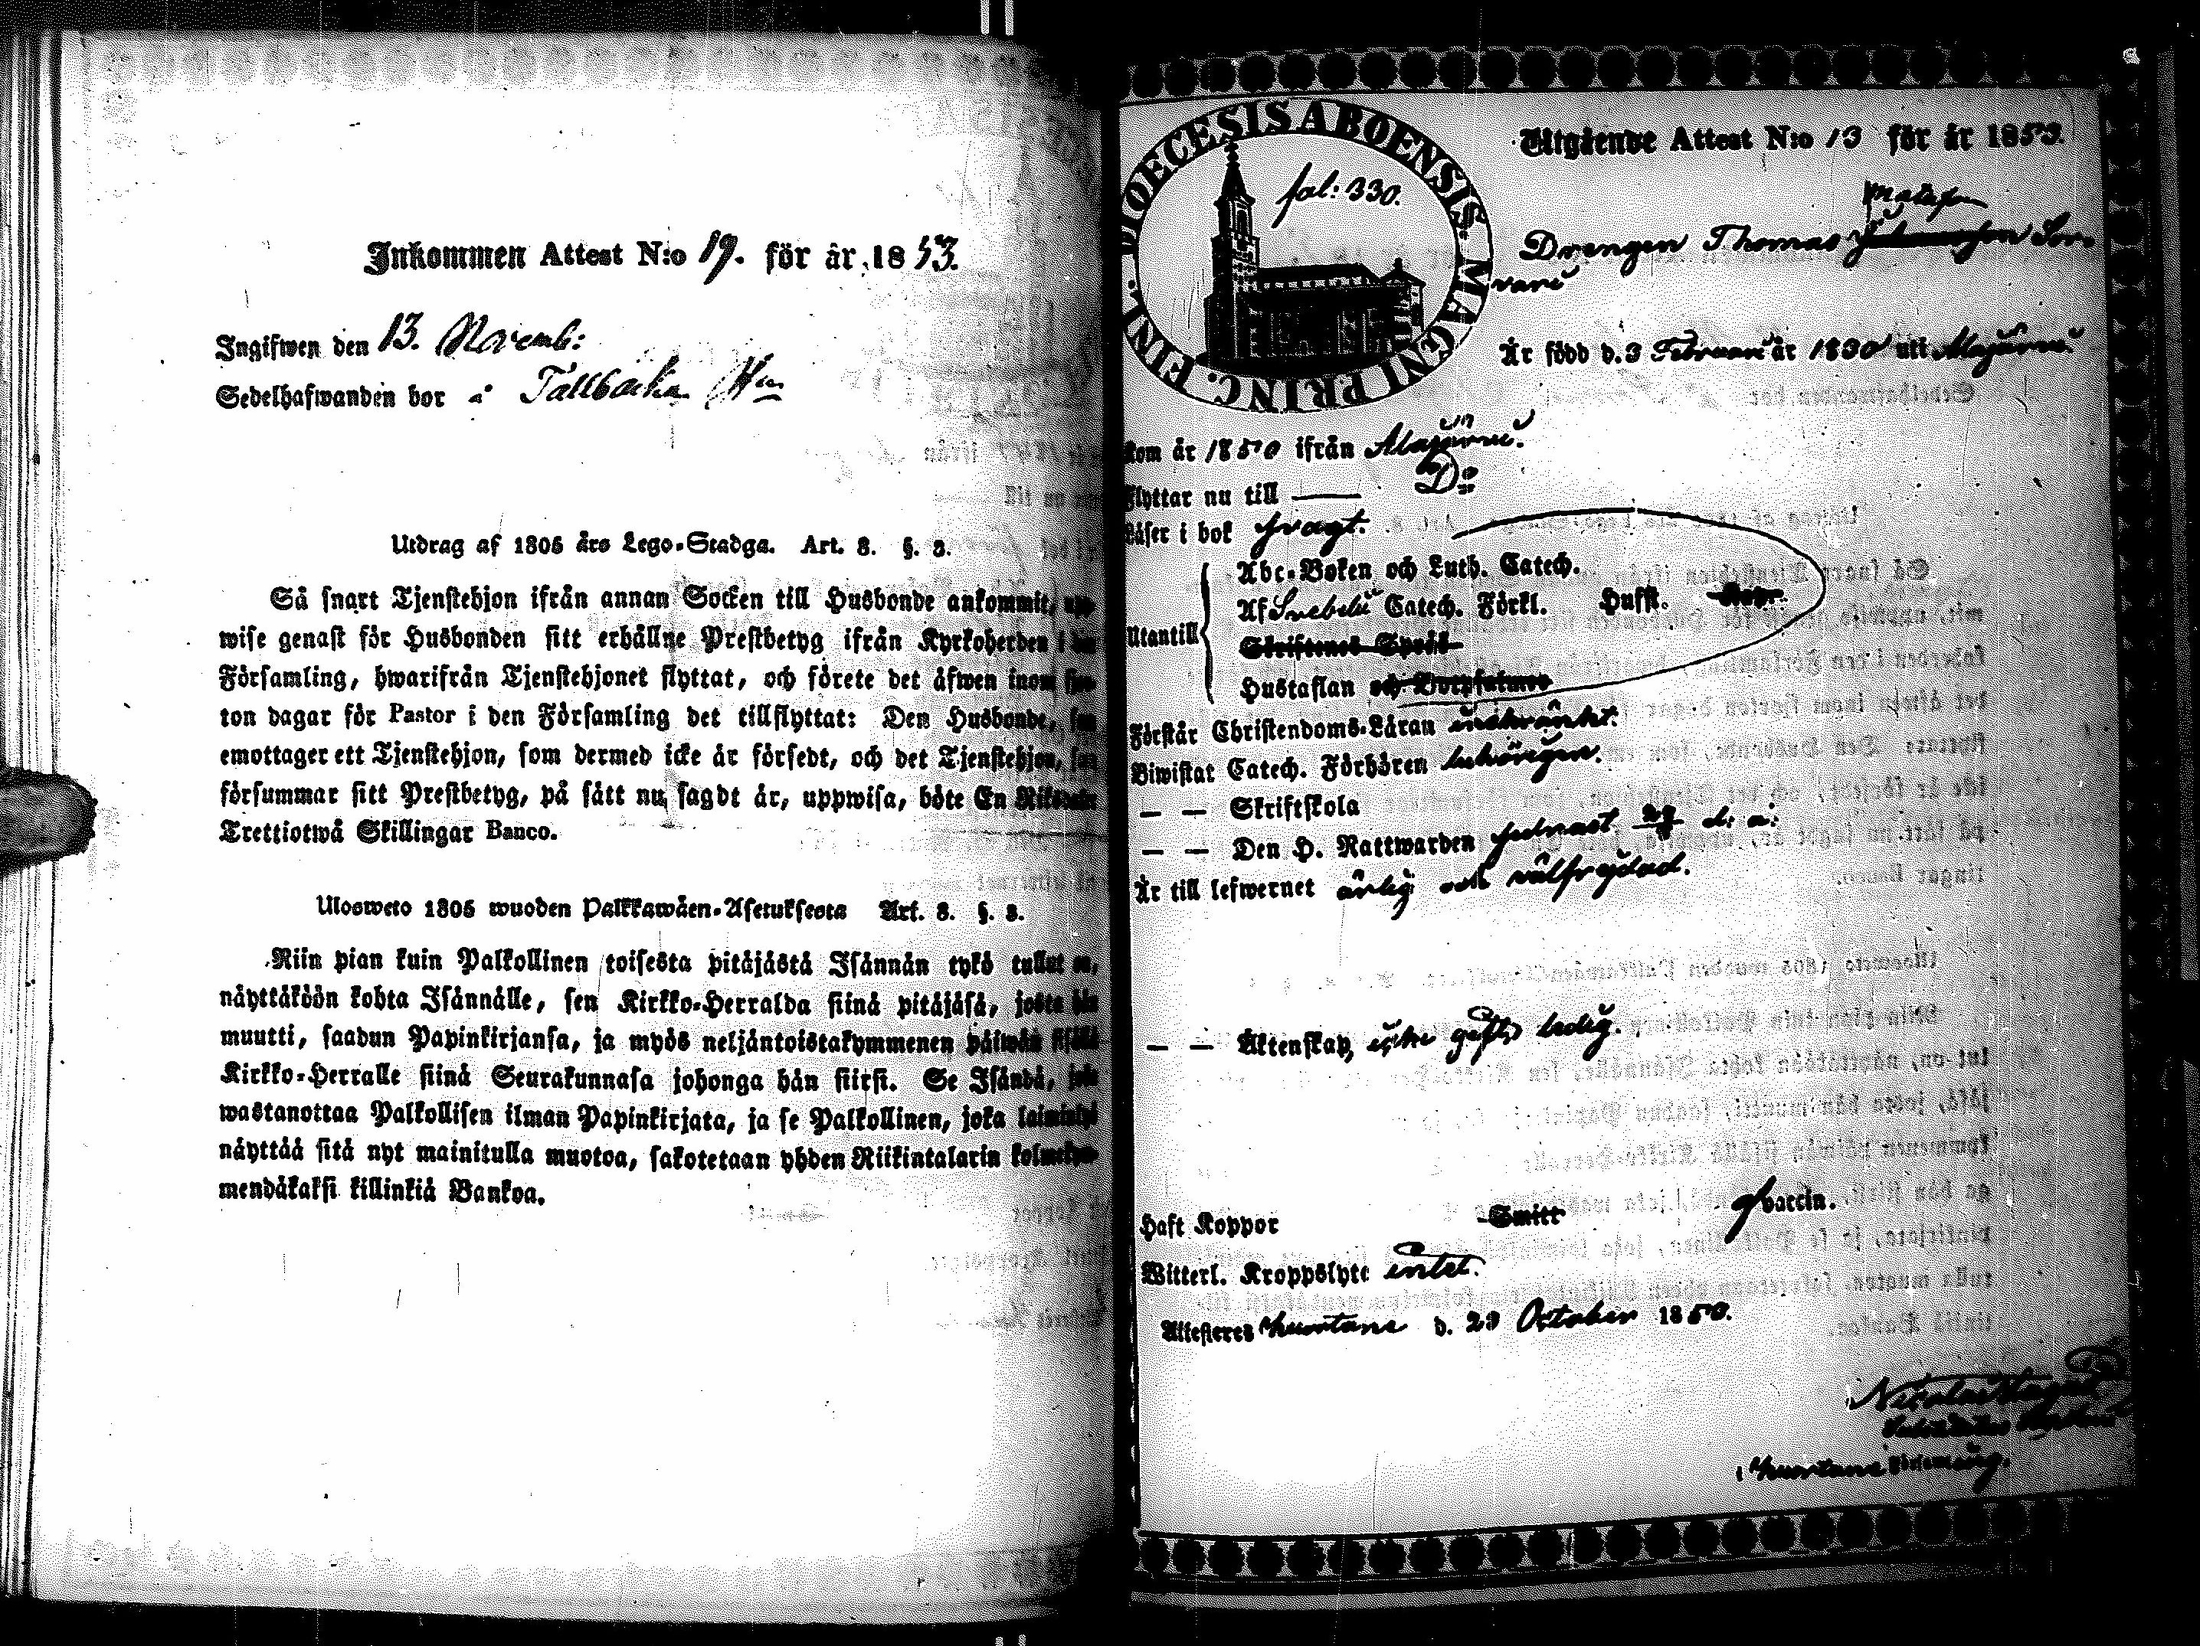 Inkommen Attest N:o 19. för år 1853.
Ingifwen den 13. Novemb:
Sedelhafwanden bor i Tallbacka
Utdrag af 1805 års Lego-Stadga. Art. 8. §. 3.
Så snart Tjenstehjon ifrån annan Socken till Husbonde ankommit,
wise genast för Husbonden sitt erhållne Prestbetyg ifrån Kyrkoherden i
Församling, hwarifrån Tjenstehjonet flyttat, och förete det äfwen inom
ton dagar för Pastor i den Församling det tillflyttat: Den Husbonde,
emottager ett Tjenstehjon, som dermed icke är försedt, och det Tjenstehjon,
försummar sitt Prestbetyg, på sätt nu sagdt är, uppwisa, böte En Riksdaler
Trettiotwå Skillingar Banco.
Ulosweto 1805 wuoden Palkkawäen-Asetuksesta Art. 8. §. 3.
Niin pian kuin Palkollinen toisesta pitäjästä Isännän tykö tullut on,
näyttäköön kohta Isännälle, sen Kirkko-Herralda siinä pitäjäsä, josta hän
muutti, saadun Papinkirjansa, ja myös neljäntoistakymmenen päiwän sisällä
Kirkko-Herralle siinä Seurakunnasa johonga hän siirsi. Se Isändä, joka
wastanottaa Palkollisen ilman Papinkirjata, ja se Palkollinen, joka laiminlyö
näyttää sitä nyt mainitulla muotoa, sakotetaan yhden Riikintalarin kolmekym-
mendäkaksi killinkiä Bankoa.
DIOECESIS ABOENSIS MAGNI PRINC. FINL.
fol: 330.
Utgående Attest N:o 13 för år 1853.
Matsson
Drengen Thomas Johansson Sor-
vari
Är född d. 3 Februari år 1830 uti Alajärvi.
Kom år 1850 ifrån Alajärvi.
Flyttar nu till — Do
Läser i bok svagt.
Utantill
Abc-Boken och Luth. Catech.
Af Svebelii Catech. Förkl. Husst.
Skriftenes Språk
Hustaflan och Botpsalmer
Förstår Christendoms-Läran inskränkt.
Biwistat Catech. Förhören behörigen.
— — Skriftskola
— — Den H. Nattwarden sednast d. å.
Är till lefwernet ärlig och välfrejdad.
— — Äktenskap, icke gift, ledig.
Haft Koppor Smitt vaccin.
Witterl. Kroppslyte intet.
Attesteres Kuortane d. 29 October 1853.
i Kuortane